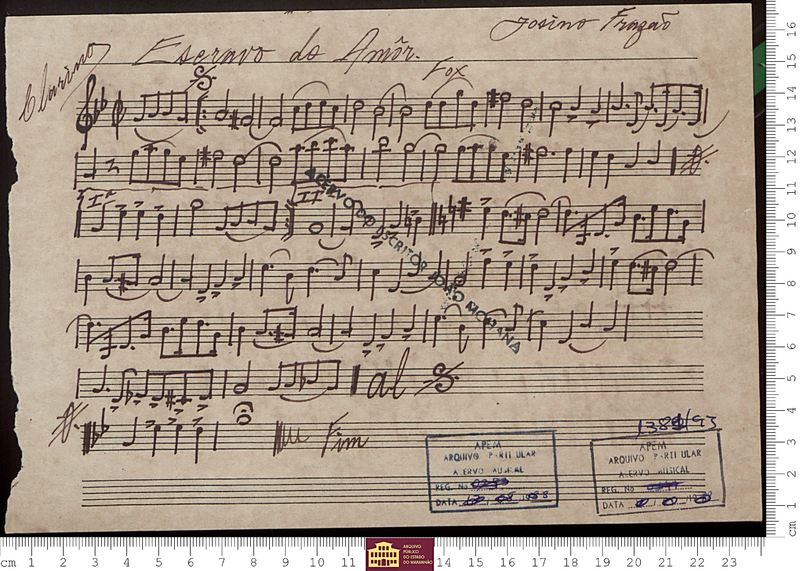 Clarino
Escravo do Amôr.
Josino Frazão
Fox
Iª
II
ACERVO DO ESCRITOR JOÃO MOHANA
al
Fim
1381/93
APEM
ARQUIVO PARTICULAR
ACERVO MUSICAL
REG. No
DATA
APEM
ARQUIVO PARTICULAR
ACERVO MUSICAL
REG. No
DATA
cm 1 2 3 4 5 6 7 8 9 10 11
ARQUIVO
PÚBLICO
DO ESTADO
DO MARANHÃO
14 15 16 17 18 19 20 21 22 23
cm 1 2 3 4 5 6 7 8 9 10 11 12 13 14 15 16